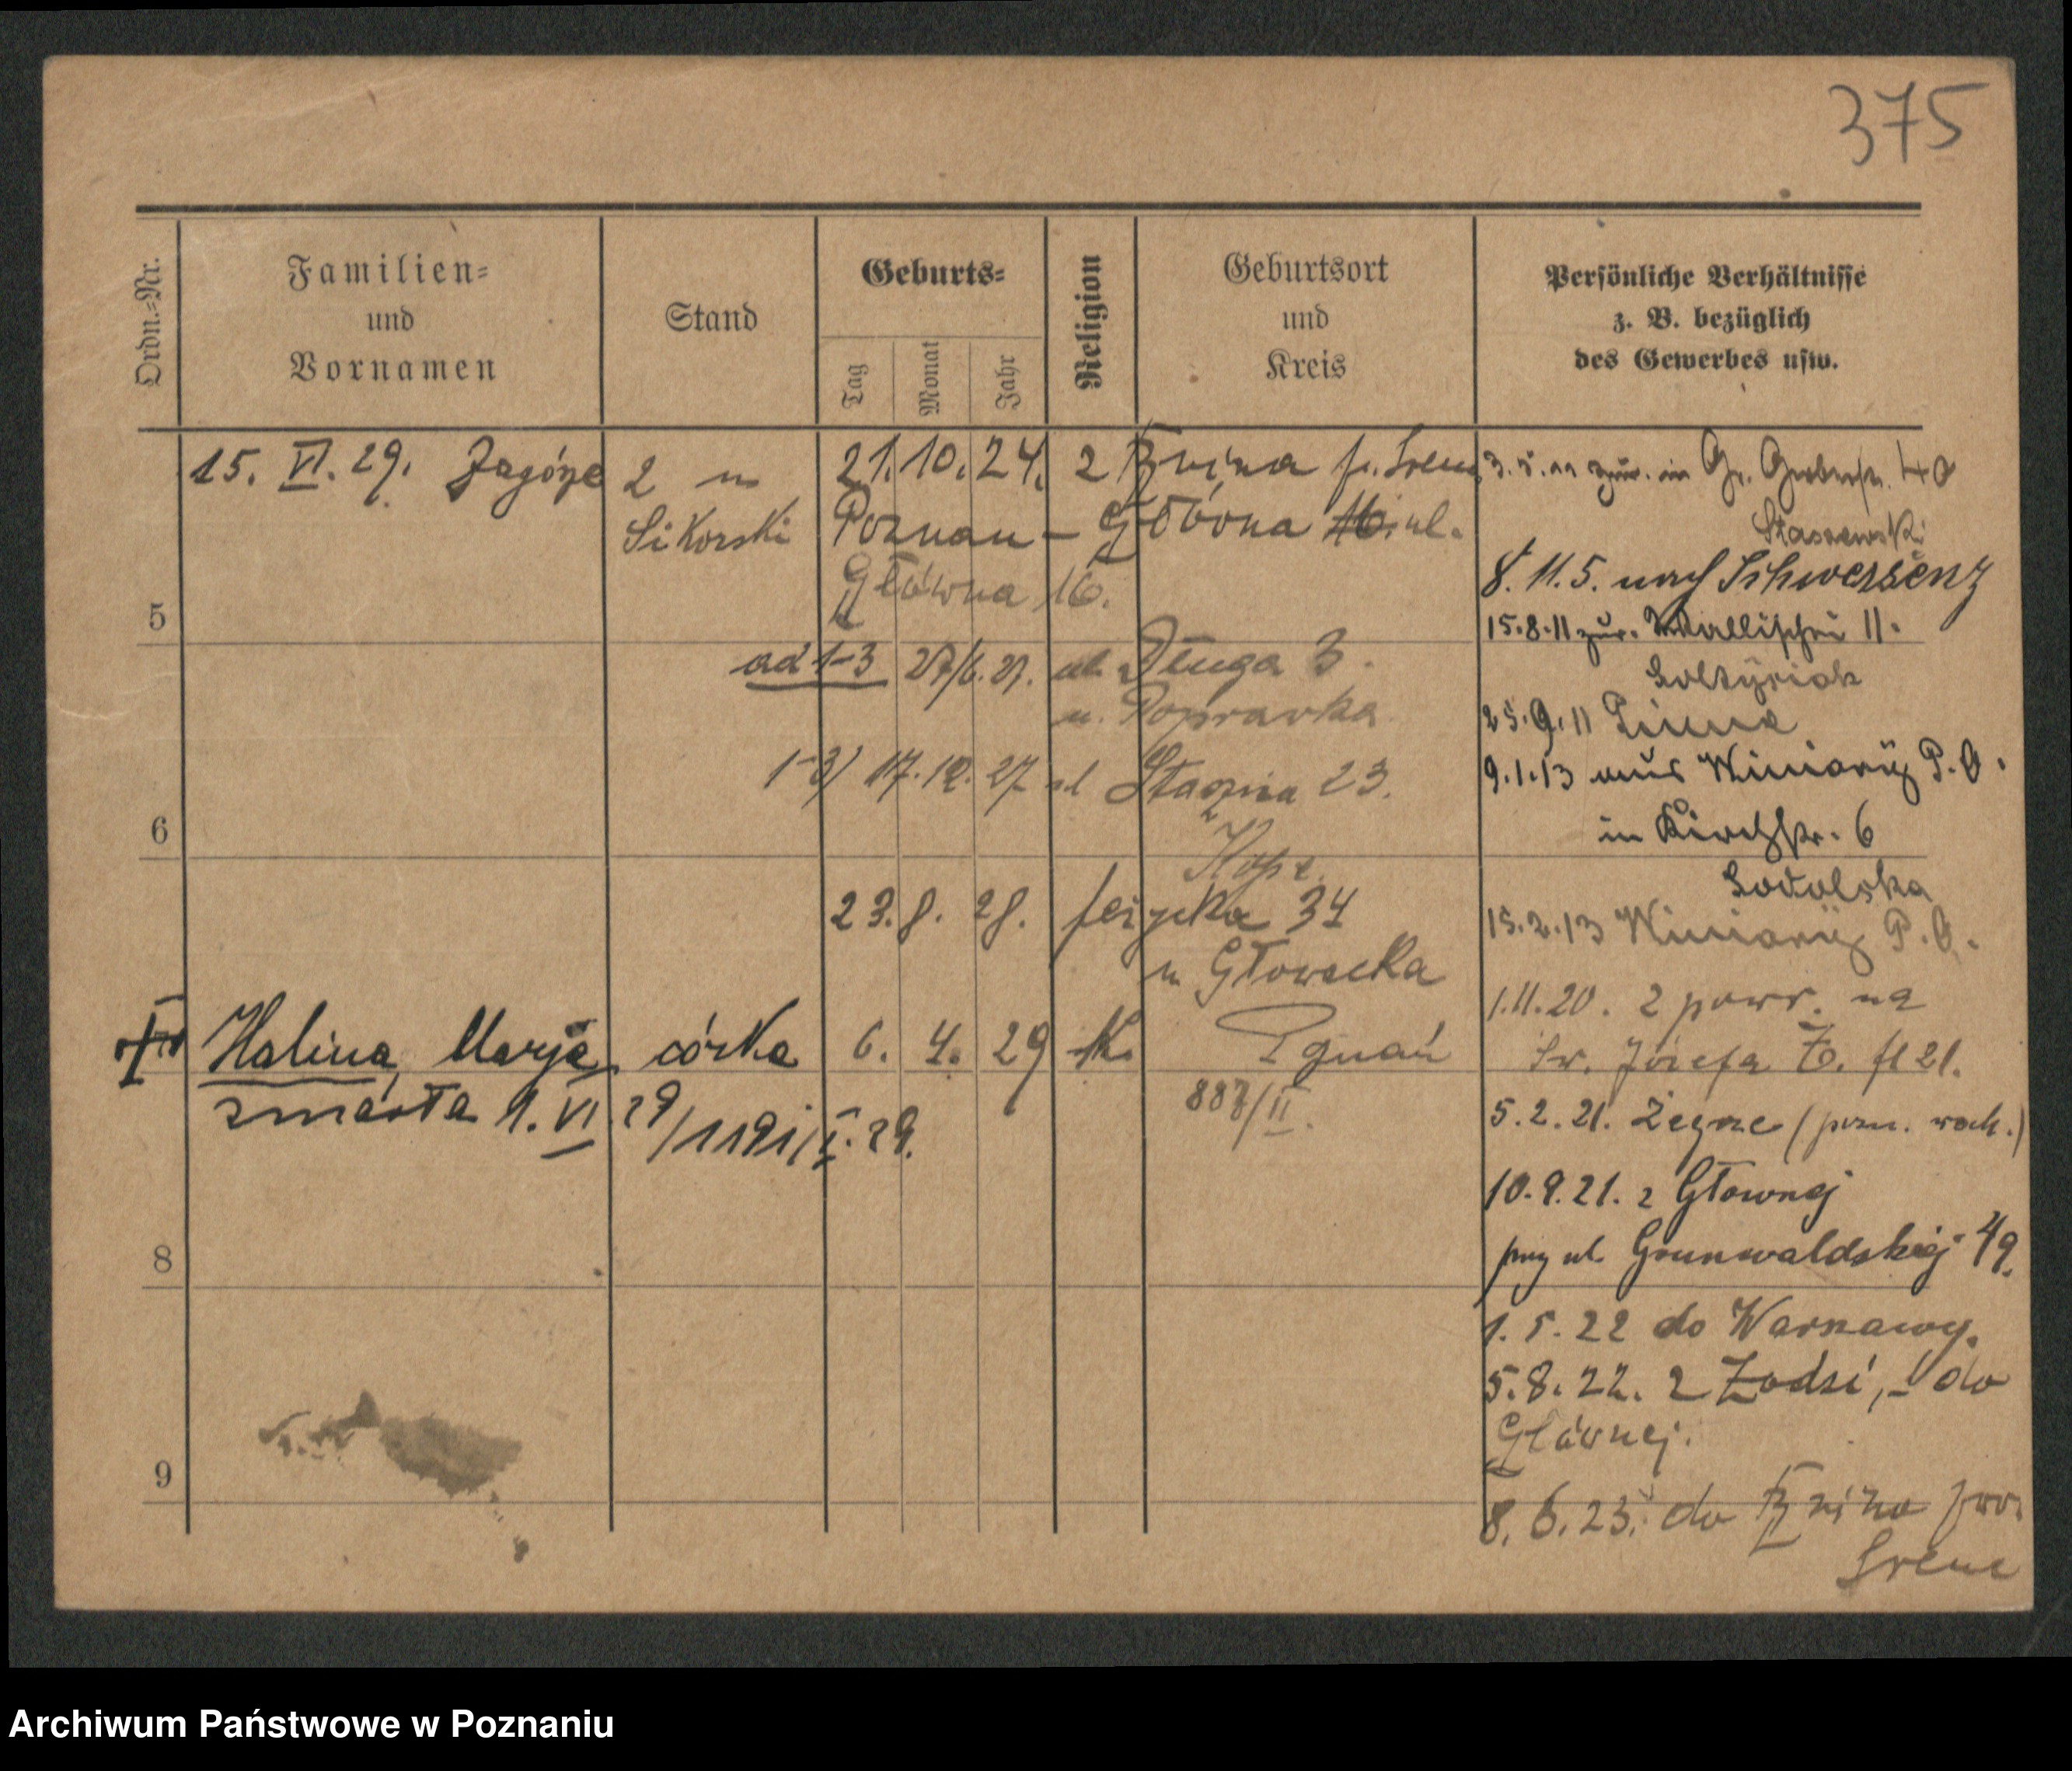 375
Ordn.-Nr.
Familien-
und
Vornamen
Stand
Geburts-
Tag
Monat
Jahr
Religion
Geburtsort
und
Kreis
Persönliche Verhältnisse
z. B. bezüglich
des Gewerbes usw.
15. VI. 29. Zagórze 2 u
Sikorski
21. 10. 24. z
Poznań - Główna ul.
Główna 16.
5
ad 1-3 27/6. 27. ul. Długa 3.
u. Poprawka
1-3) 17. 12. 27 ul
23.
6
23. 8. 28. 34
u Głowacka
Halina, Marja córka 6. 4. 29 K. Poznań
zmarła 1. VI. 29/1191/I. 29.
887/II.
8
9
3.5.11 zur. in Gr. Gerberstr. 40
Staszewski
8. 11. 5. nach Schwersenz
15.8.11 zur. Wallischei 11.
Soltysiak
25.9.11 Pinne
9.1.13 aus Winiary P. O.
in Kirchstr. 6
15.2.13 Winiary P. O.
1.11.20. z powr. na
Św. Józefa
5.2.21. Zegrze
10.9.21. z Głownej
przy ul. Grunwaldskiej 49.
1.5.22 do Warszawy.
5.8.22. z Łodzi, - do
Głównej.
8.6.23. do
Śrem
Archiwum Państwowe w Poznaniu